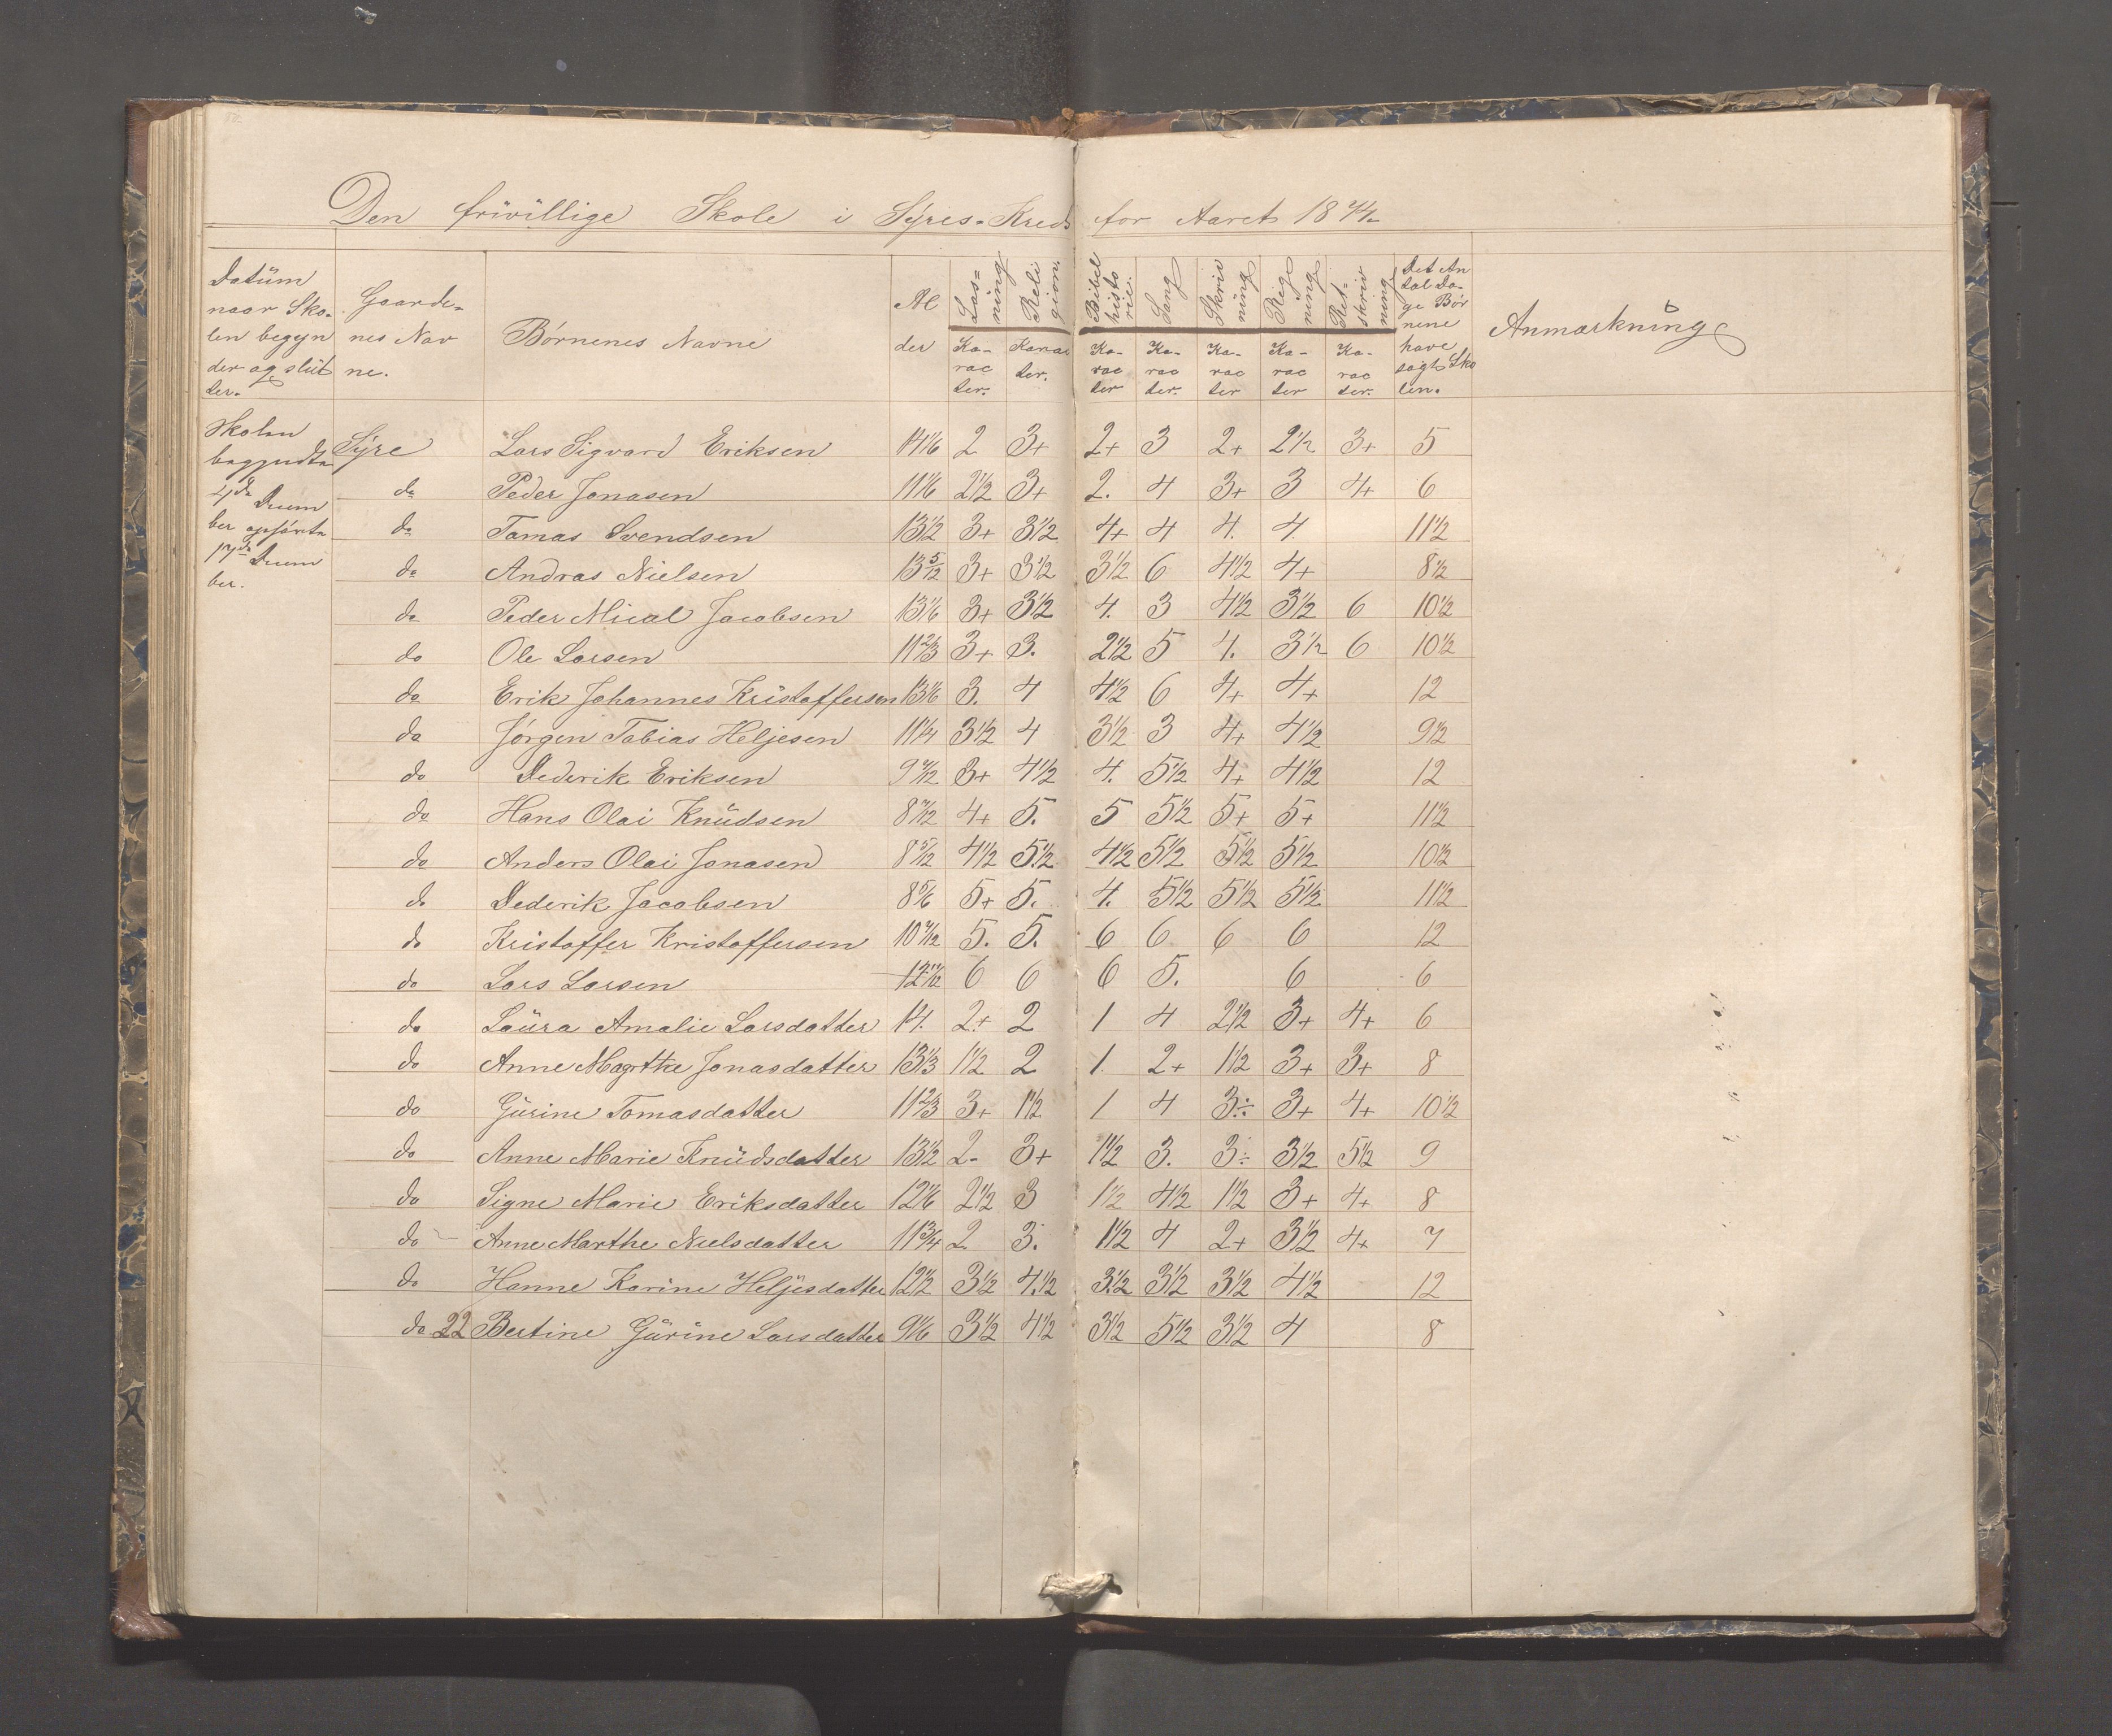 Den frivillige Skole i Syres-Kreds for Aaret 18
Datum naar Sko-len begyn der og slut ter.
Gaarde-nes Nav ne.
Børnenes Navne
Al der
Læs-ning Ka-rac ter.
Reli gion. Karac ter.
Bibel histo rie. Ka-rac ter
Sang Ka-rac ter.
Skriv ning Ka-rac ter
Reg ning Ka-rac ter
Ret-skriv ning Ka-rac ter.
Det An tal Da-ge Bør nene have søgt Sko len.
Anmærkning
Skolen begyndte 4de Decem ber opførte 17de Decem ber.
Syre Lars Sigvard Eriksen 14 1/6 2 3+ 2+ 3 2+ 2 1/2 3+ 5
do Peder Jonasen 11 1/6 2 1/2 3+ 2. 4 3+ 3 4+ 6
do Tomas Svendsen 13 1/2 3+ 3 1/2 4+ 4 4. 4. 11 1/2
do Andras Nielsen 13 5/12 3+ 3 1/2 3 1/2 6 4 1/2 4+ 8 1/2
do Peder Mical Jacobsen 13 1/6 3+ 3 1/2 4. 3 4 1/2 3 1/2 6 10 1/2
do Ole Larsen 11 2/3 3+ 3. 2 1/2 5 4. 3 1/2 6 10 1/2
do Erik Johannes Kristoffersen 13 1/6 3. 4 4 1/2 6 4+ 4+ 12
do Jørgen Tobias Heljesen 11 1/4 3 1/2 4 3 1/2 3 4+ 4 1/2 9 1/2
do Dederik Eriksen 9 7/12 3+ 4 1/2 4. 5 1/2 4+ 4 1/2 12
do Hans Olai Knudsen 8 7/12 4+ 5. 5 5 1/2 5+ 5+ 11 1/2
do Anders Olai Jonasen 8 5/12 4 1/2 5 1/2 4 1/2 5 1/2 5 1/2 5 1/2 10 1/2
do Dederik Jacobsen 8 5/6 5+ 5. 4. 5 1/2 5 1/2 5 1/2 11 1/2
do Kristoffer Kristoffersen 10 7/12 5. 5. 6 6 6 6 12
do Lars Larsen 12 11/12 6 6 6 5. 6 6
do Laura Amalie Larsdatter 14. 2+ 2 1 4 2 1/2 3+ 4+ 6
do Anne Magrthe Jonasdatter 13 1/3 1 1/2 2 1 2+ 1 1/2 3+ 3+ 8
do Gurine Tomasdatter 11 2/3 3+ 1 1/2 1 4 3÷ 3+ 4+ 10 1/2
do Anne Marie Knudsdatter 13 1/2 2- 3+ 1 1/2 3. 3÷ 3 1/2 5 1/2 9
do Signe Marie Eriksdatter 12 1/6 2 1/2 3 1 1/2 4 1/2 1 1/2 3+ 4+ 8
do Anne Marthe Nielsdatter 11 3/4 2 3. 1 1/2 4 2+ 3 1/2 4+ 7
do Hanne Karine Heljesdatter 12 1/2 3 1/2 4 1/2 3 1/2 3 1/2 3 1/2 4 1/2 12
do 22 Bertine Gurine Larsdatter 9 1/6 3 1/2 4 1/2 3 1/2 5 1/2 3 1/2 4 8